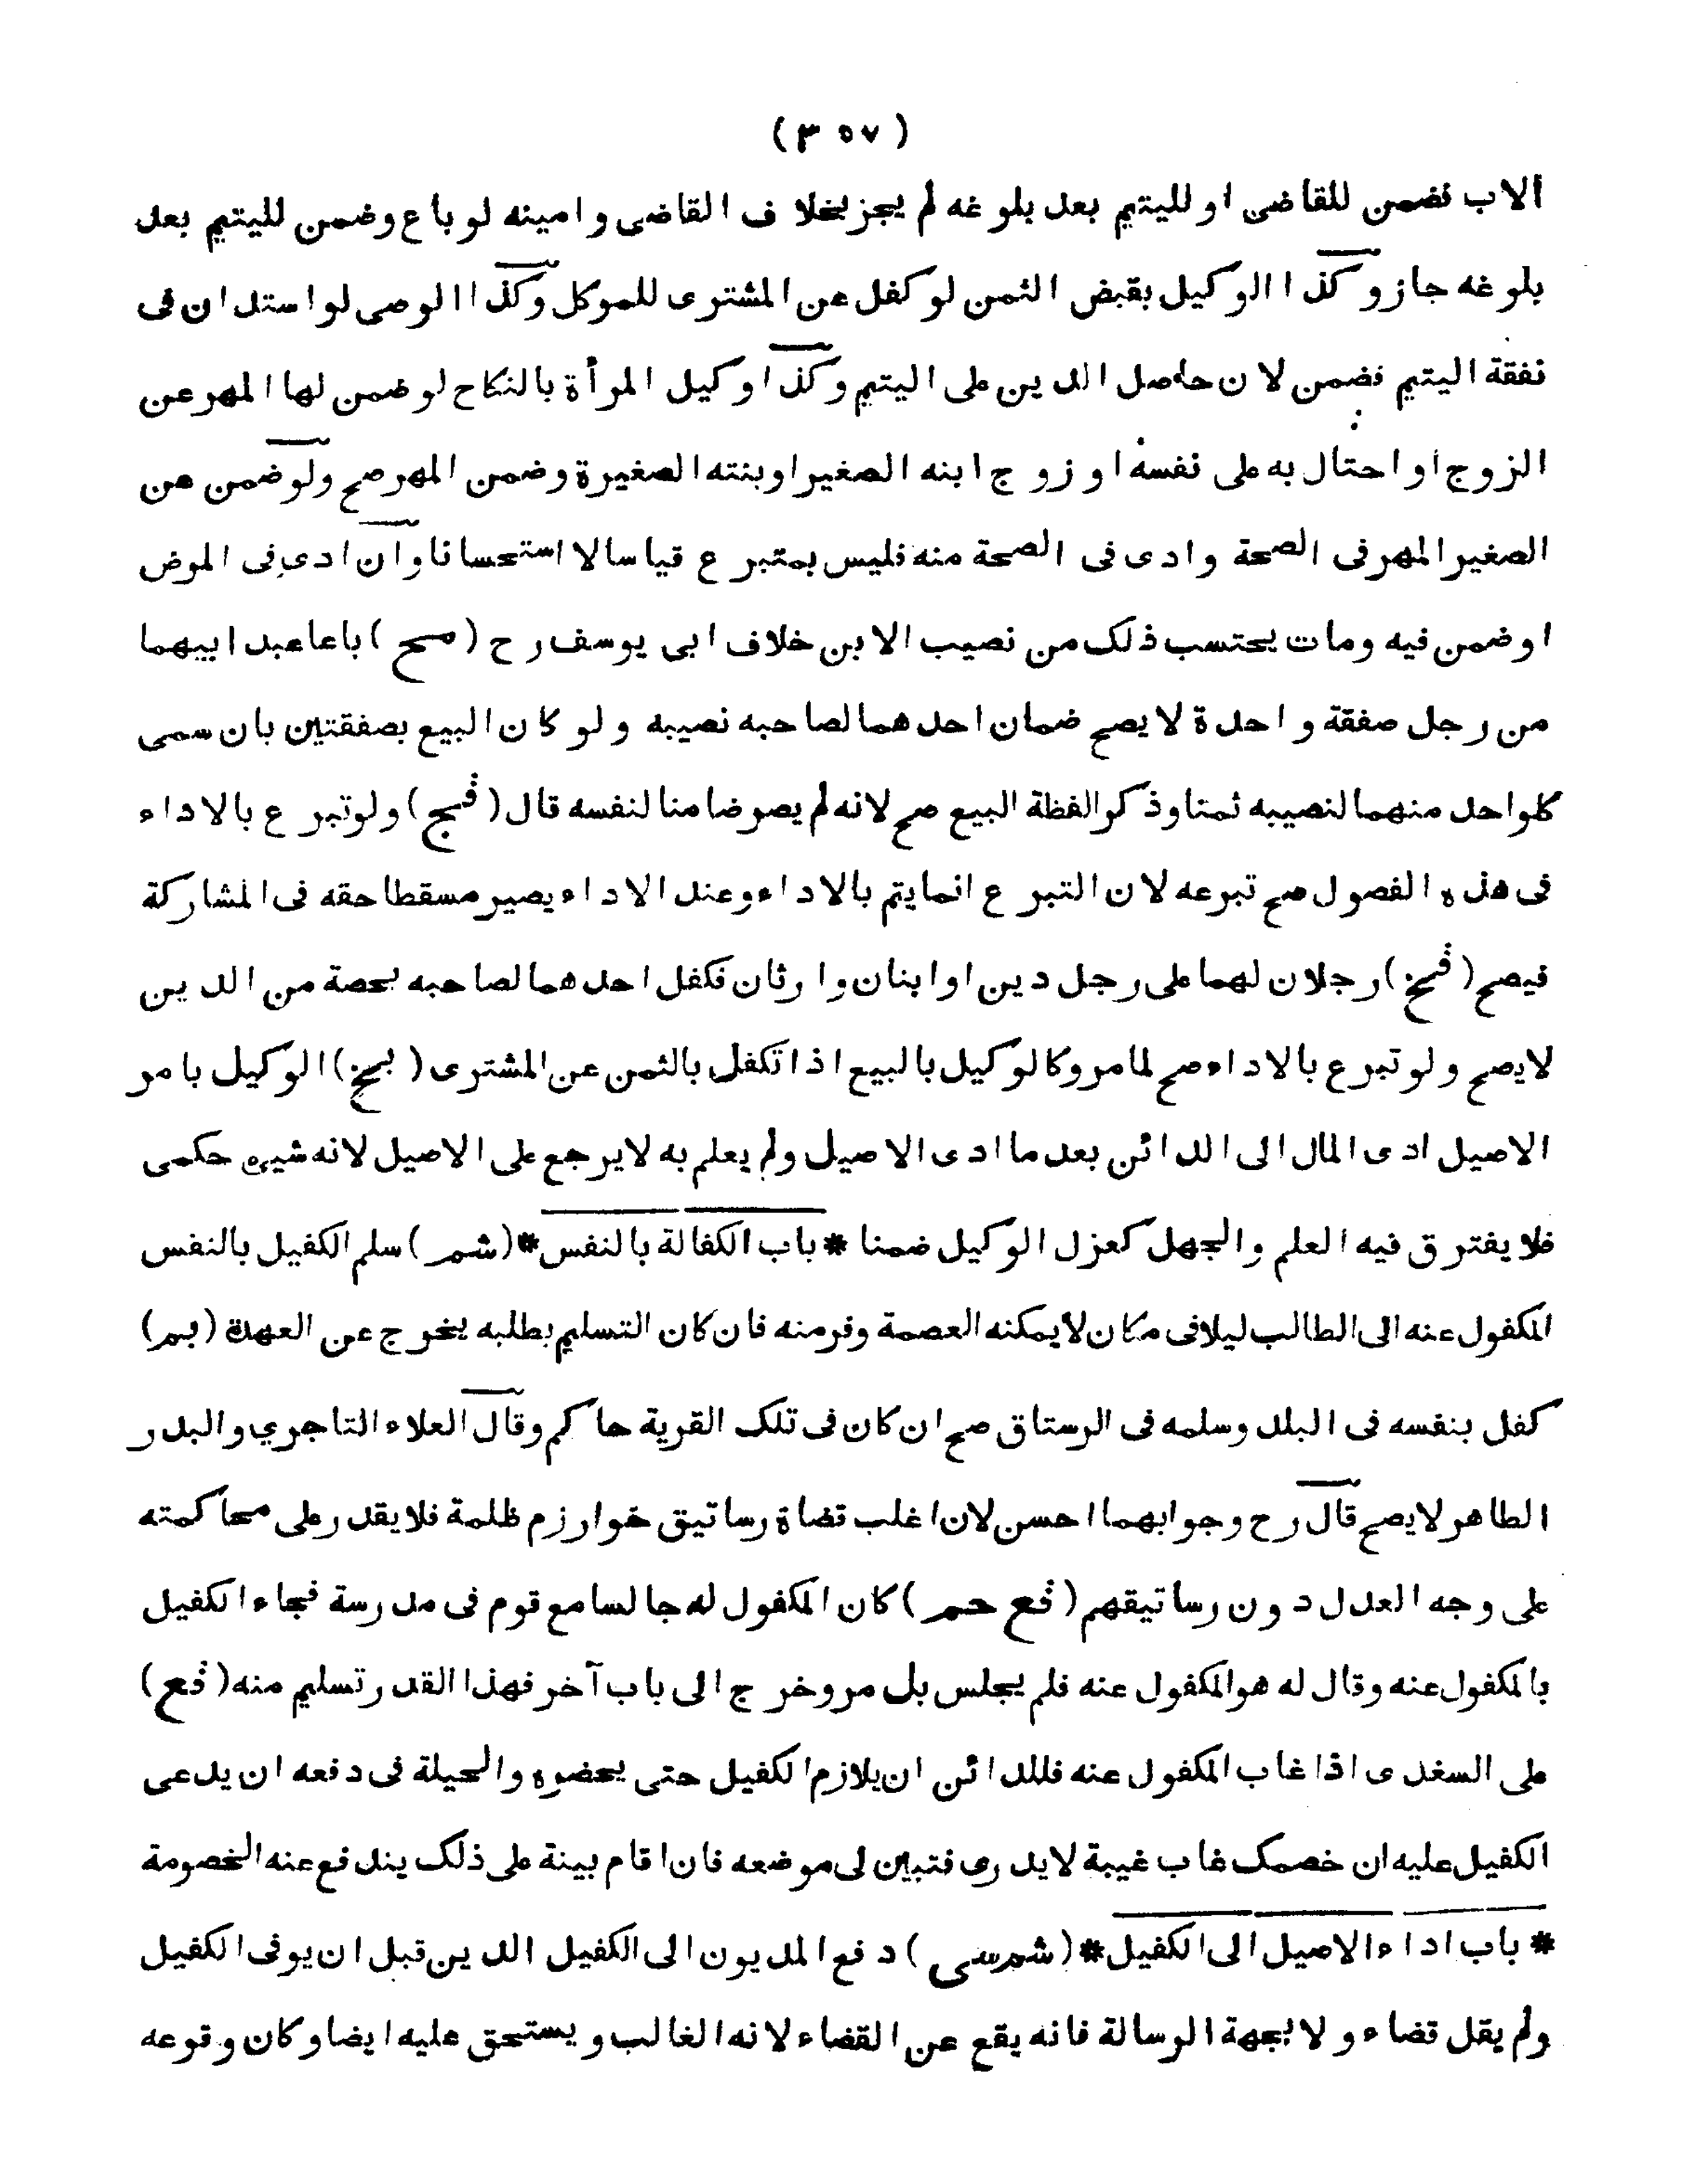 ( ٣٥٧ )
الاب فضمن للقاضى او لليتيم بعد بلوغه لم يجز بخلاف القاضى وامينه لو باع وضمن لليتيم بعد
بلوغه جاز وكذا الوكيل بقبض الثمن لو كفل عن المشترى للموكل وكذا الوصى لو استدان فى
نفقة اليتيم فضمن لان حاصل الدين على اليتيم وكذا وكيل المرأة بالنكاح لو ضمن لها المهر عن
الزوج او احتال به على نفسه او زوج ابنه الصغير او بنته الصغيرة وضمن المهر صح ولو ضمن عن
الصغير المهر فى الصحة وادى فى الصحة منه فليس بمتبرع قياسا لا استحسانا وان ادى فى المرض
او ضمن فيه ومات يحتسب ذلك من نصيب الابن خلاف ابى يوسف رح (مسح) باعا عبد ابيهما
من رجل صفقة واحدة لا يصح ضمان احدهما لصاحبه نصيبه ولو كان البيع بصفقتين بان سمى
كلواحد منهما لنصيبه ثمنا وذكر الفظة البيع صح لانه لم يصر ضامنا لنفسه قال (فج) ولو تبرع بالاداء
فى هذه الفصول صح تبرعه لان التبرع انما يتم بالاداء وعند الاداء يصير مسقطا حقه فى المشاركة
فيصح (فخ) رجلان لهما على رجل دين او ابنان وارثان فكفل احدهما لصاحبه بحصة من الدين
لا يصح ولو تبرع بالاداء صح لما مر وكالوكيل بالبيع اذا تكفل بالثمن عن المشترى (بخ) الوكيل بامر
الاصيل ادى المال الى الدائن بعد ما ادى الاصيل ولم يعلم به لا يرجع على الاصيل لانه شيء حكمى
فلا يفترق فيه العلم والجهل كعزل الوكيل ضمنا * باب الكفالة بالنفس * (شم) سلم الكفيل بالنفس
المكفول عنه الى الطالب ليلا فى مكان لا يمكنه العصمة وفر منه فان كان التسليم بطلبه يخرج عن العهدة (بم)
كفل بنفسه فى البلد وسلمه فى الرستاق صح ان كان فى تلك القرية حاكم وقال العلاء التاجري والبدر
الطاهر لا يصح قال رح وجوابهما احسن لان اغلب قضاة رساتيق خوارزم ظلمة فلا يقدر على محاكمته
على وجه العدل دون رساتيقهم (فع حم) كان المكفول له جالسا مع قوم فى مدرسة فجاء الكفيل
بالمكفول عنه وقال له هو المكفول عنه فلم يجلس بل مر وخرج الى باب آخر فهذا القدر تسليم منه (فع)
على السغدى اذا غاب المكفول عنه فللدائن ان يلازم الكفيل حتى يحضره والحيلة فى دفعه ان يدعى
الكفيل عليه ان خصمك غاب غيبة لا يدرى فتبين لى موضعه فان اقام بينة على ذلك يندفع عنه الخصومة
* باب اداء الاصيل الى الكفيل * (شم سى) دفع المديون الى الكفيل الدين قبل ان يوفى الكفيل
ولم يقل قضاء ولا بجهة الرسالة فانه يقع عن القضاء لانه الغالب ويستحق عليه ايضا وكان وقوعه